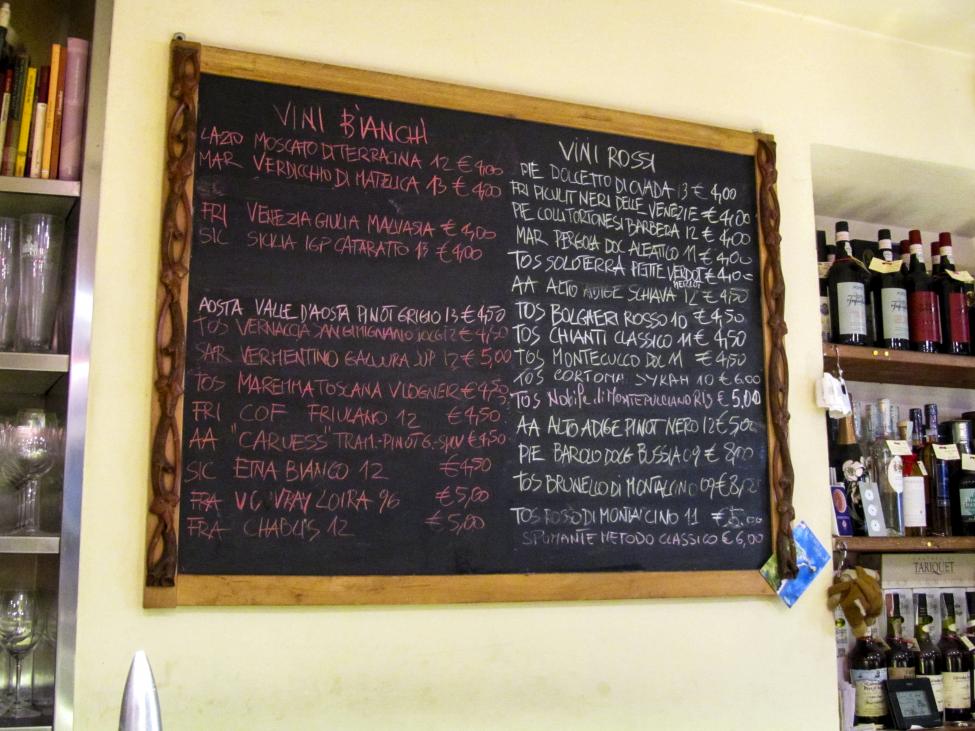 VINI BIANCHI
LAZIO MOSCATO DI TERRACINA 12 € 4,00
MAR VERDICCHIO DI MATELICA 13 € 4,00
FRI VENEZIA GIULIA MALVASIA € 4,00
SIC SICILIA IGP CATARATTO 13 € 4,00
AOSTA VALLE D'AOSTA PINOT GRIGIO 13 € 4,50
TOS VERNACCIA SAN GIMIGNANO € 4,50
SAR VERMENTINO GALLURA € 5,00
TOS MAREMMA TOSCANA VIOGNIER € 4,50
FRI COF FRIULANO 12 € 4,50
AA "CARUESS" TRAM-PINOT G. € 4,50
SIC ETNA BIANCO 12 € 4,50
FRA VOUVRAY LOIRA 96 € 5,00
FRA CHABLIS 12 € 5,00
VINI ROSSI
PIE DOLCETTO DI OVADA 13 € 4,00
FRI PICULIT NERI DELLE VENEZIE € 4,00
PIE COLLI TORTONESI BARBERA 12 € 4,00
MAR PERGOLA DOC ALEATICO 11 € 4,00
TOS SOLOTERRA PETITE VERDOT € 4,00
MERLOT
AA ALTO ADIGE SCHIAVA 12 € 4,50
TOS BOLGHERI ROSSO 10 € 4,50
TOS CHIANTI CLASSICO 11 € 4,50
TOS MONTECUCCO DOC 11 € 4,50
TOS CORTONA SYRAH 10 € 6,00
TOS Nobile di MONTEPULCIANO € 5,00
AA ALTO ADIGE PINOT NERO 12 € 5,00
PIE BAROLO DOCG BUSSIA 09 € 8,00
TOS BRUNELLO DI MONTALCINO 09 €
TOS ROSSO DI MONTALCINO 11 € 5,00
SPUMANTE METODO CLASSICO € 6,00
TARIQUET